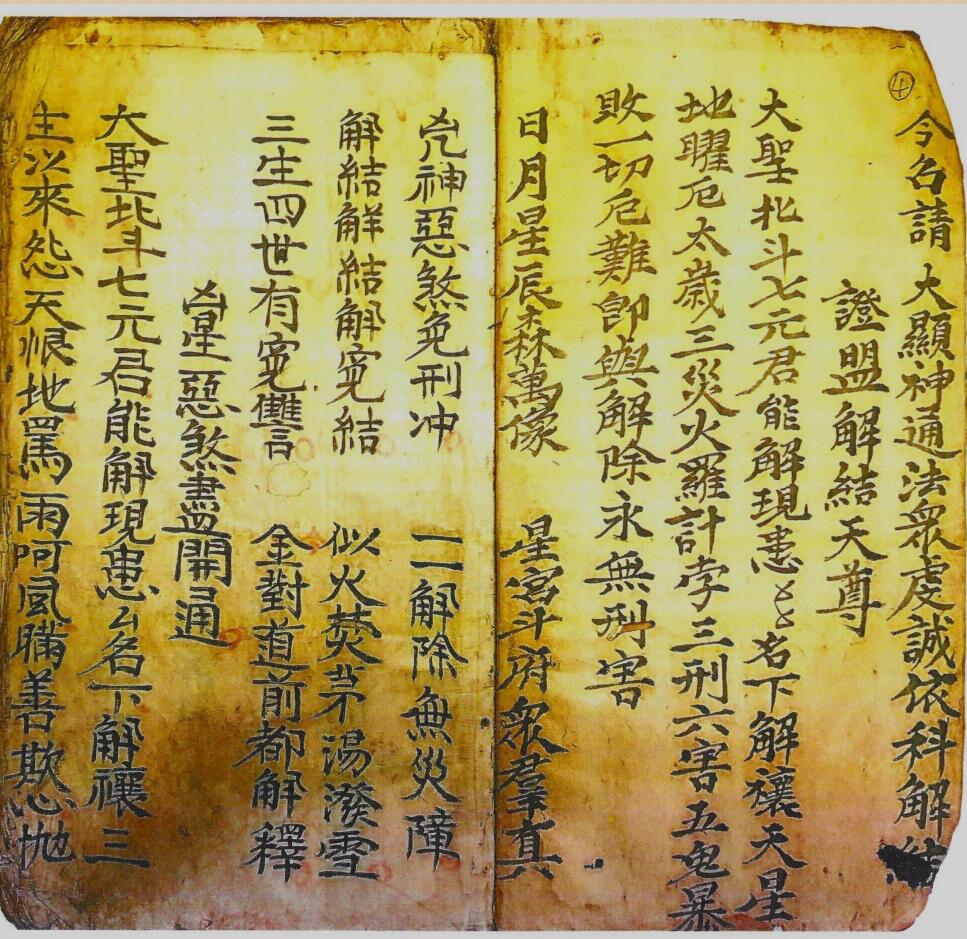 ④
今召請 大顯神通法衆虔誠依科解結
證盟解結天尊
大聖北斗七元君能解現患〻〻名下解禳天星
地曜厄太歲三災火羅計孛三刑六害五鬼暴
敗一切厄難即與解除永無刑害
日月星辰森萬像 星宮斗府衆羣真
兇神惡煞免刑冲 一一解除無災障
解結解結解寃結 似火焚茅湯潑雪
三生四世有寃讐 金對道前都解釋
凶星惡煞盡開通
大聖北斗七元君能解現患厶名下解禳三
生以來怨天恨地罵雨呵風瞞善欺心抛